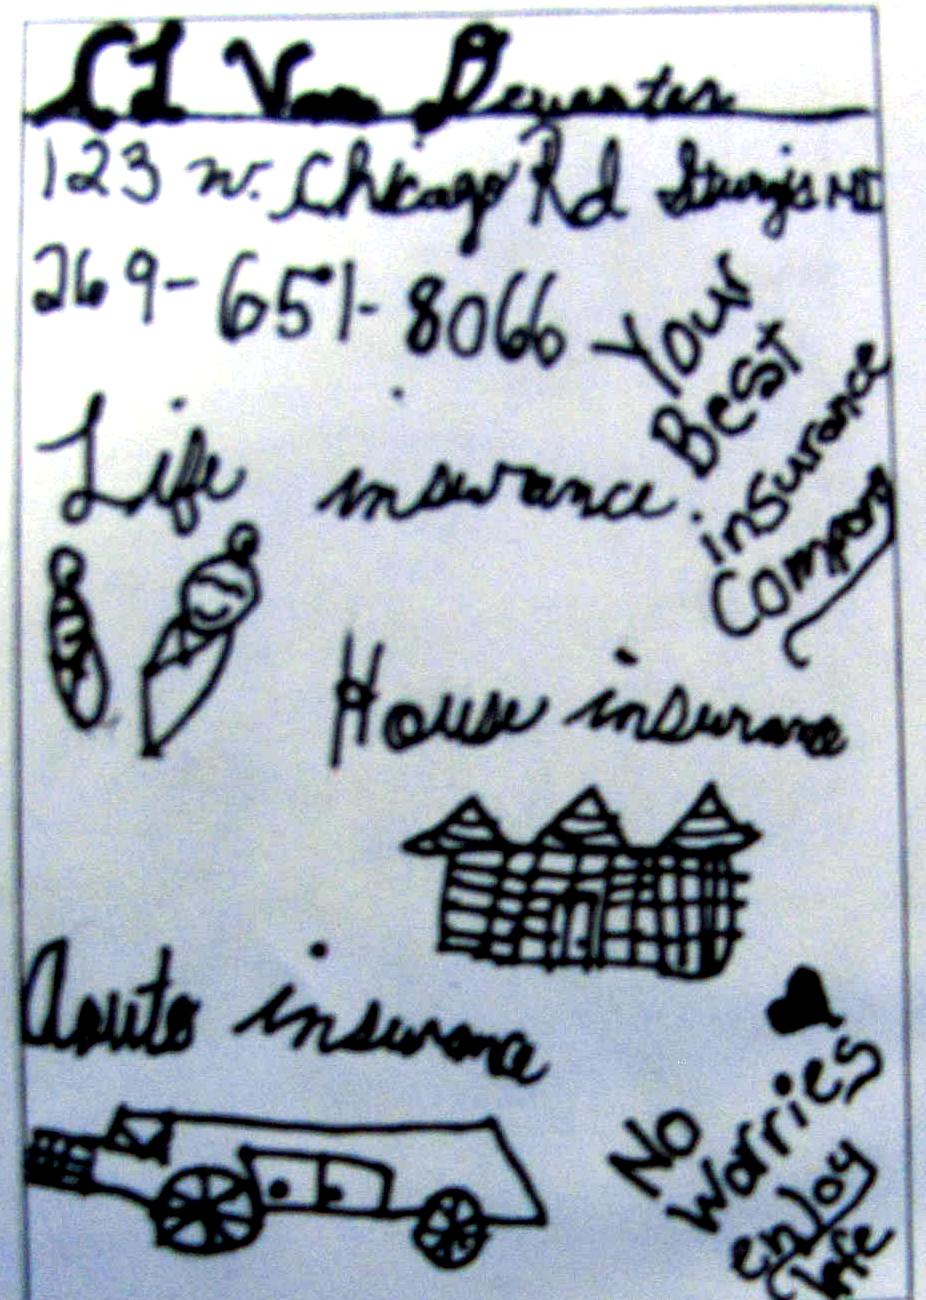 CL Van Deventer
123 W. Chicago Rd Sturgis MI
269-651-8066
Your
Best
insurance
Company
Life insurance
House insurance
Aouto insurance
No
Worries
enJoy
Life